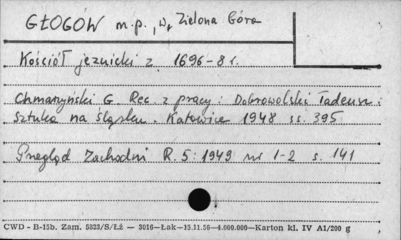 GŁOGÓW m.p., w, Zielona Góra
Kościół jezuicki z 1696-8 r.
Chmarzyński G. Rec. z pracy: Dobrowolski Tadeusz:
Sztuka na Śląsku. Katowice 1948 ss. 395
Przegląd Zachodni R. 5: 1949 nr 1-2 s. 141
CWD - B-15b. Zam. 5823/S/Łż — 3016—Łak—15.11.56—4.000.000—Karton kl. IV A1/200 g